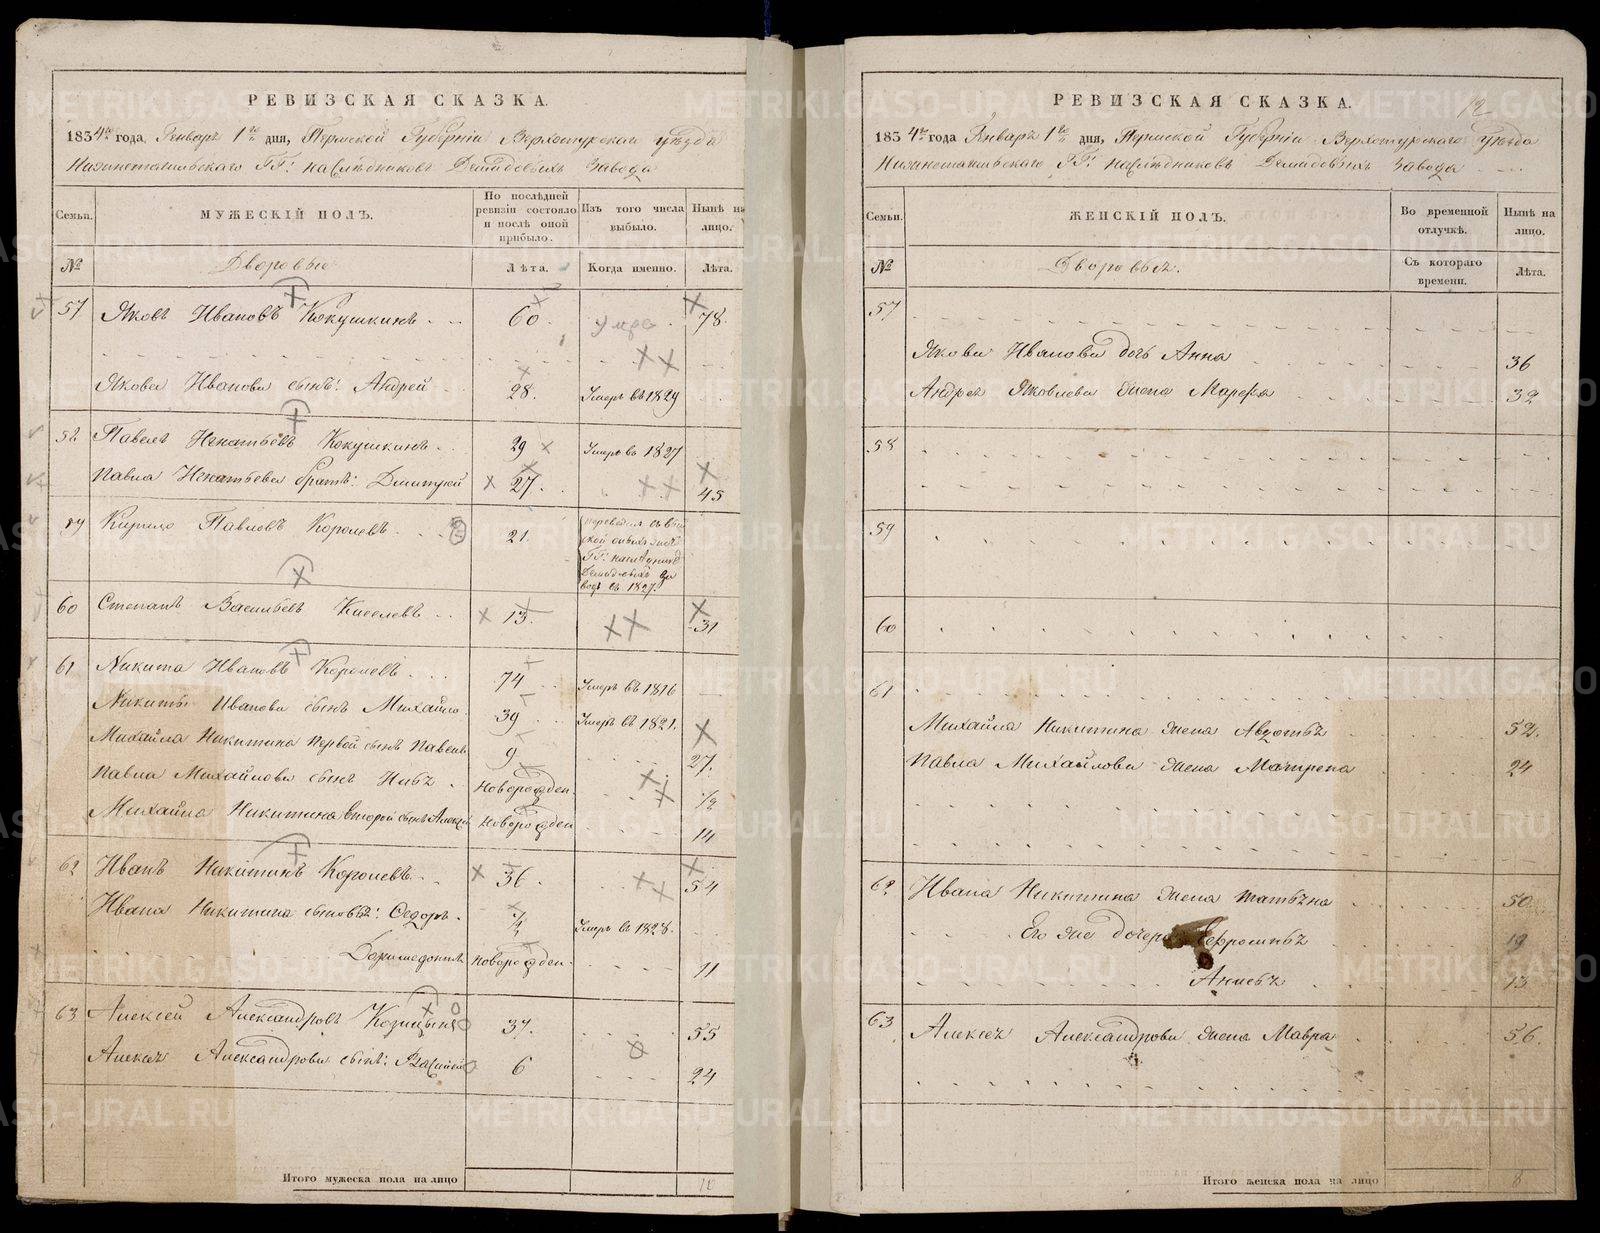 РЕВИЗСКАЯ СКАЗКА.
1834го года, Генваря 1го дня, Пермской Губерніи Верхотурскаго уѣзда
Нижнетагильскаго ГГ: наслѣдниковъ Демидовыхъ Завода
Семьи. МУЖЕСКІЙ ПОЛЪ. По послѣдней ревизіи состояло и послѣ оной прибыло. Изъ того числа выбыло. Нынѣ на лицо.
№ Дворовые Лѣта. Когда именно. Лѣта.
57 Яковъ Ивановъ Кокушкинъ 60. умре 78.
Якова Иванова сынъ: Андрей 28. Умеръ въ 1829
58 Павелъ Игнатьевъ Кокушкинъ 29 Умеръ въ 1827
Павла Игнатьева братъ: Дмитрей 27. 45
59 Кирило Павловъ Королевъ 21.
ГГ:
въ 1827.
60 Степанъ Васильевъ Киселевъ 13. 31
61 Никита Ивановъ Королевъ 74 Умеръ въ 1816
Никиты Иванова сынъ Михайло 39 Умеръ въ 1821.
Михайла Никитина первой сынъ Павелъ 9 27.
Павла Михайлова сынъ новорожден. 1/2
Михайла Никитина второй сынъ Алексѣй новорожден 14
62 Иванъ Никитинъ Королевъ 36. 54
Ивана Никитина сыновья: Ѳедоръ 1/2 Умеръ въ 1828.
новорожден. 11
63 Алексѣй Александровъ Козицынъ 37. 55
Алексѣя Александрова сынъ: Василій 6 24
Итого мужеска пола на лицо
РЕВИЗСКАЯ СКАЗКА.
12
1834го года Генваря 1го дня, Пермской Губерніи Верхотурскаго уѣзда
Нижнетагильскаго ГГ: наслѣдниковъ Демидовыхъ Завода
Семьи. ЖЕНСКІЙ ПОЛЪ. Во временной отлучкѣ. Нынѣ на лицо.
№ Дворовыя. Съ котораго времени. Лѣта.
57
Якова Иванова дочь Анна 36
Андрея Яковлева жена Марфа 32
58
59
60
61
Михайла Никитина жена Авдотья 52.
Павла Михайлова жена Матрена 24
62 Ивана Никитина жена Татьяна 50
Его же дочери Ефросинья 19
Анисья 13
63 Алексѣя Александрова жена Мавра 56.
Итого женска пола на лицо 8
METRIKI.GASO-URAL.RU